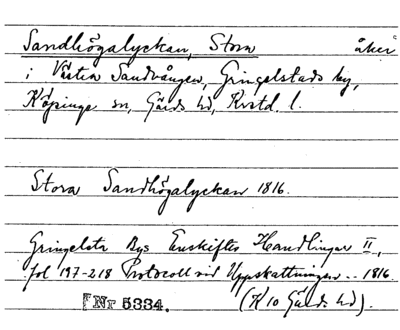 Sandhögalyckan, Stora åker
i Västra Sandvången, Gringelstads by,
Köpinge sn, Gärds hd, Kristd. l.
Stora Sandhögalyckan 1816.
Gringelsta Bys Enskiftes Handlingar II,
fol 197-218 Protocoll vid Uppskattningen .. 1816.
Nr 5334. (K 10 Gärds hd).